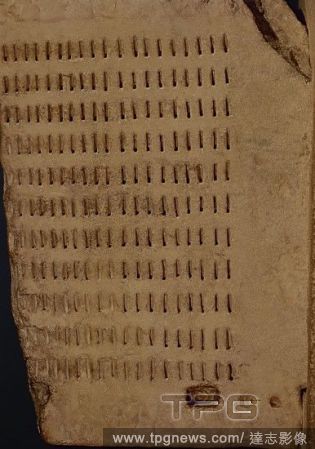 TPG
www.tpgnews.com/ 達志影像